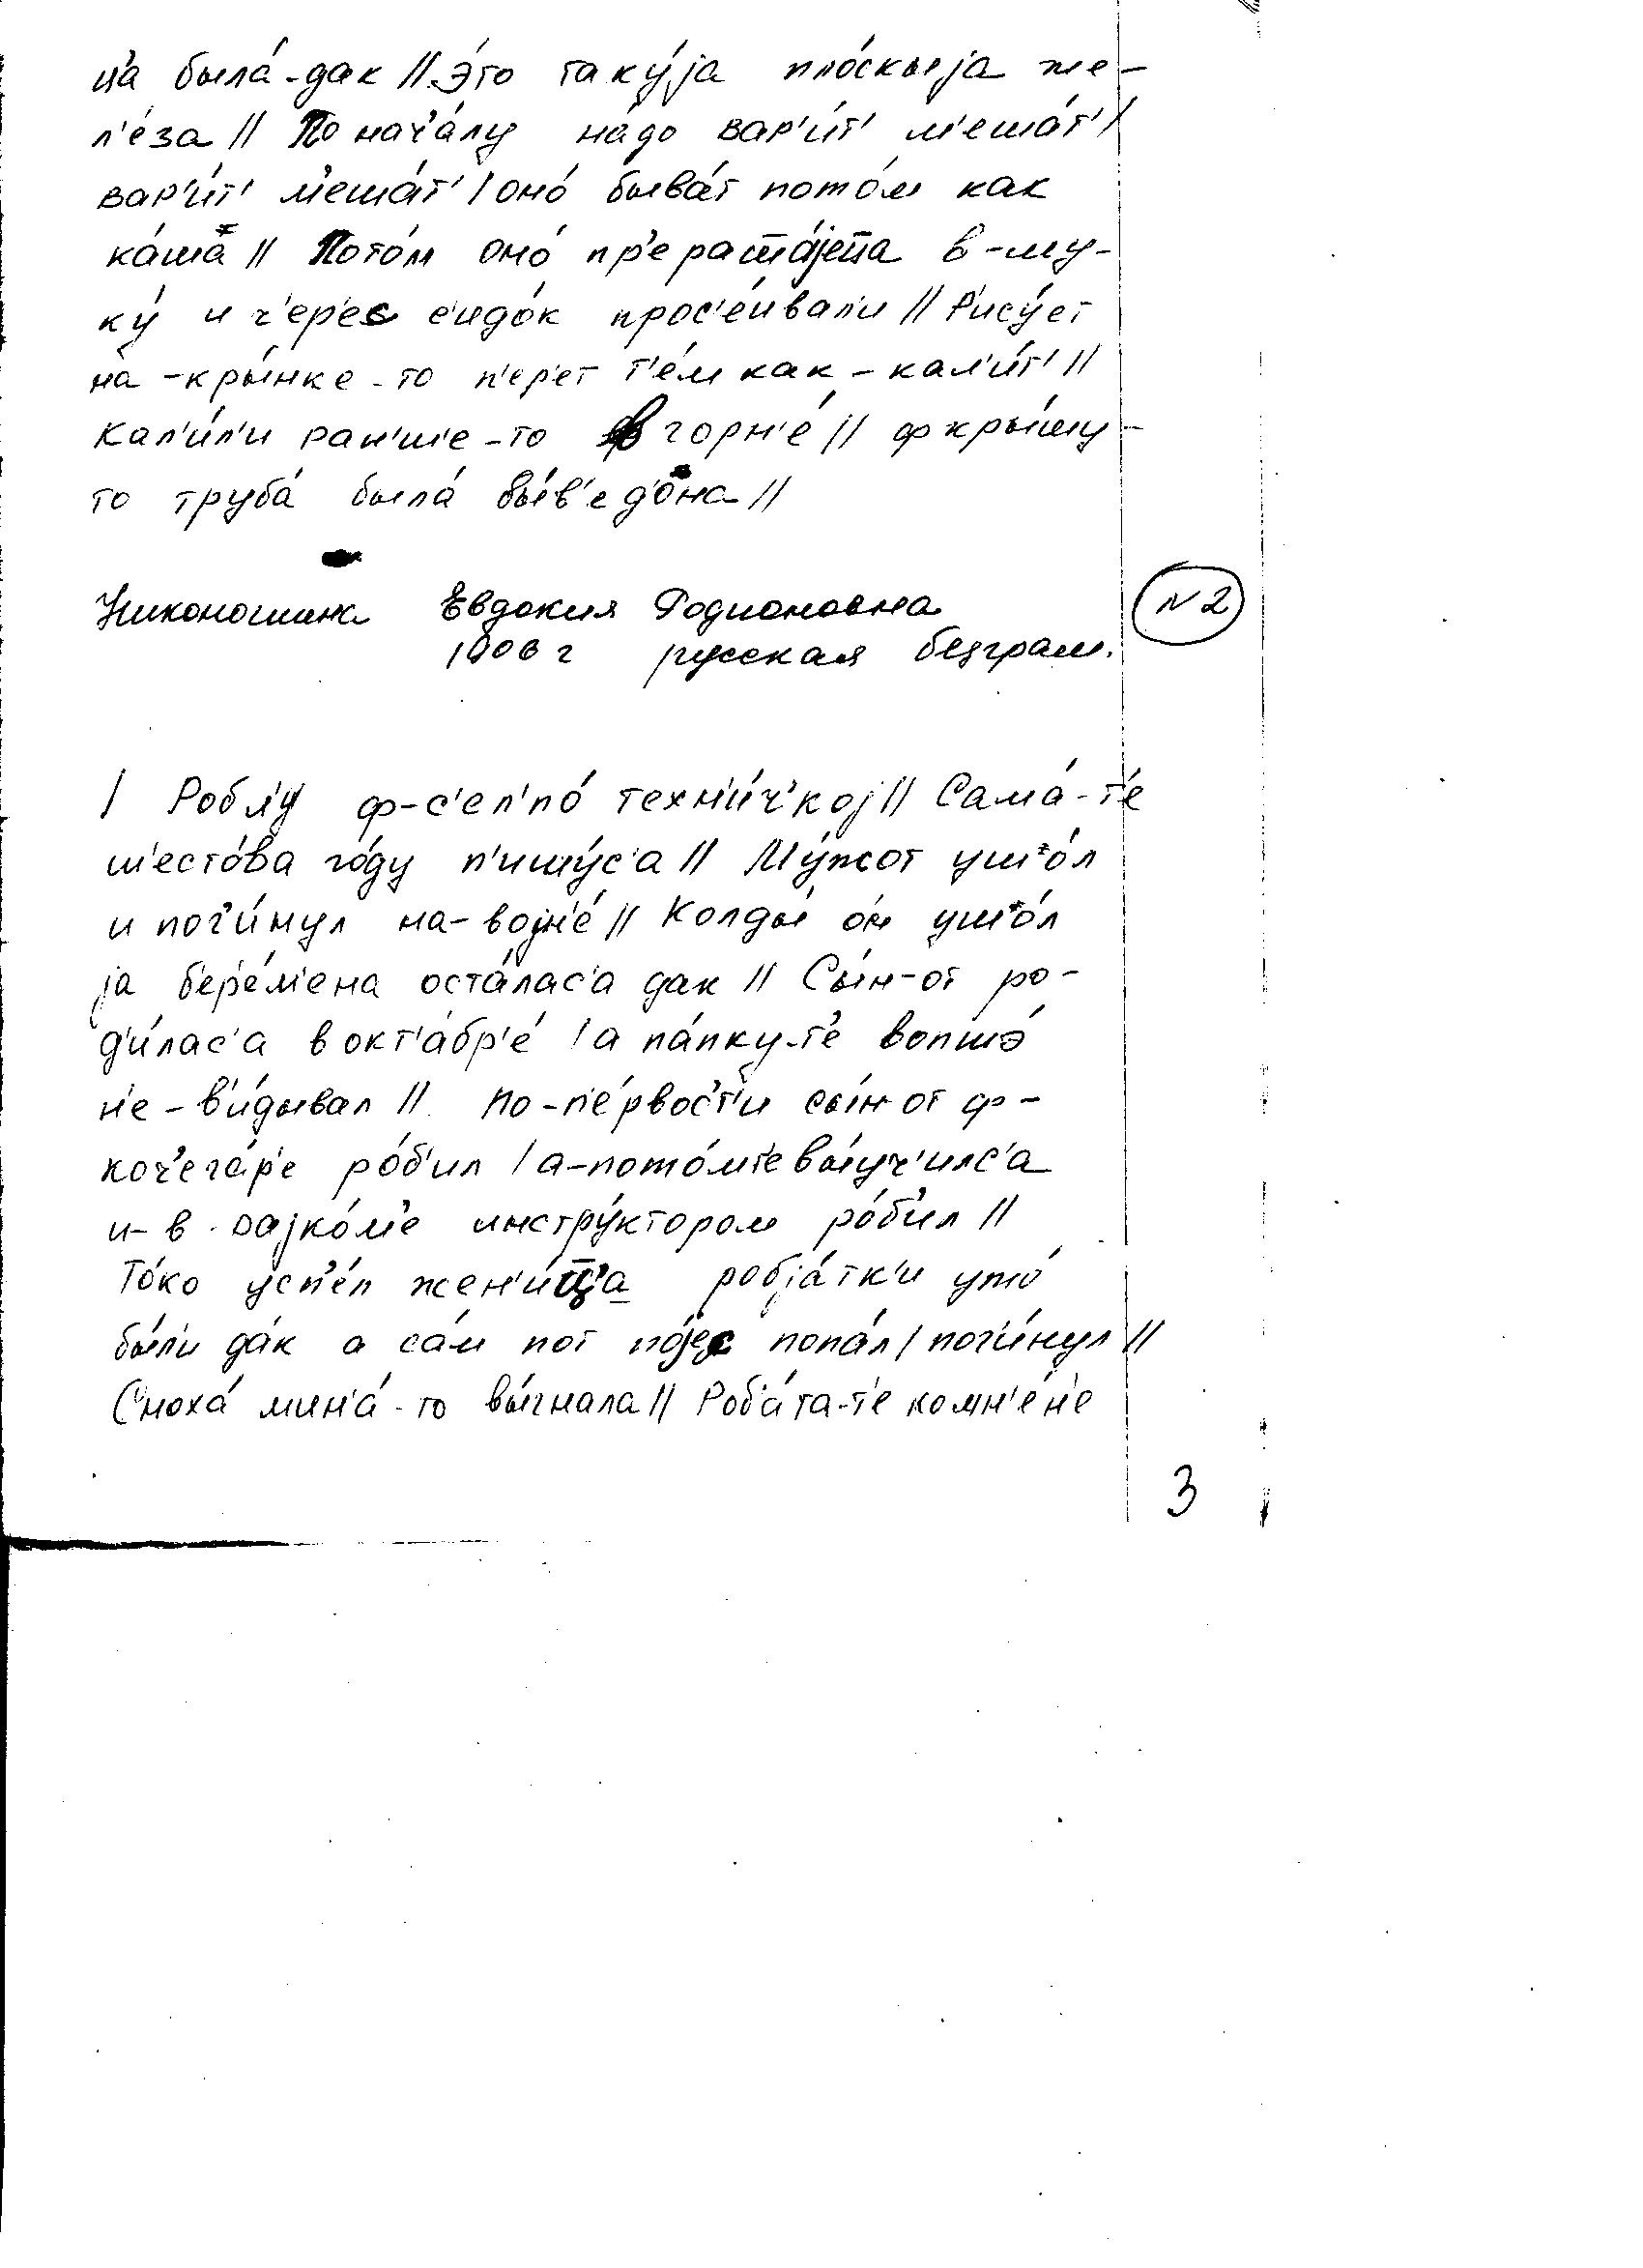 ц'а была́-дак // э́то таку́jа пло́скыjа же-
л'е́за // По нач'а́лу на́до вар'и́т' м'еша́т' /
вар'и́т' м'еша́т' / оно́ быва́т пото́м как
ка́ша // Пото́м оно́ пр'ераста́jетца в-му-
ку́ и ч'ер'ес с'идо́к прос'е́ивал'и // Р'ису́ет
на-кры́нке-то п'ер'ет т'е́м как-кал'и́т' //
Кал'и́л'и ран'ше-то в горн'е́ // ф кры́шу-
то труба́ была́ вы́в'ед'она //
Никоношина Евдокия Родионовна
1906 г русская безграм.
N 2
/ Робл'у́ ф-с'ел'по́ техн'и́ч'коj // Сама́-т'е
шесто́ва го́ду п'ишу́с'а // Му́жот ушо́л
и пог'и́нул на-воjн'е́ // Колды́ о́н ушо́л
jа б'ер'е́м'ена оста́лас'а дак // Сы́н-от ро-
д'и́лас'а в окт'абр'е́ / а па́пку-т'е вопшэ́
н'е-в'и́дывал // По-п'е́рвост'и сы́н от ф-
коч'ега́р'е ро́б'ил / а-пото́мт'е вы́уч'илс'а
и-в-раjко́м'е инстру́ктором ро́б'ил //
То́ко усп'е́л жен'и́тца робjа́тк'и ужо́
бы́л'и да́к а са́м пот по́jес попа́л / пог'и́нул //
Сноха́ мин'а́-то вы́гнала // Роб'а́та-т'е комн'е́ н'е
3